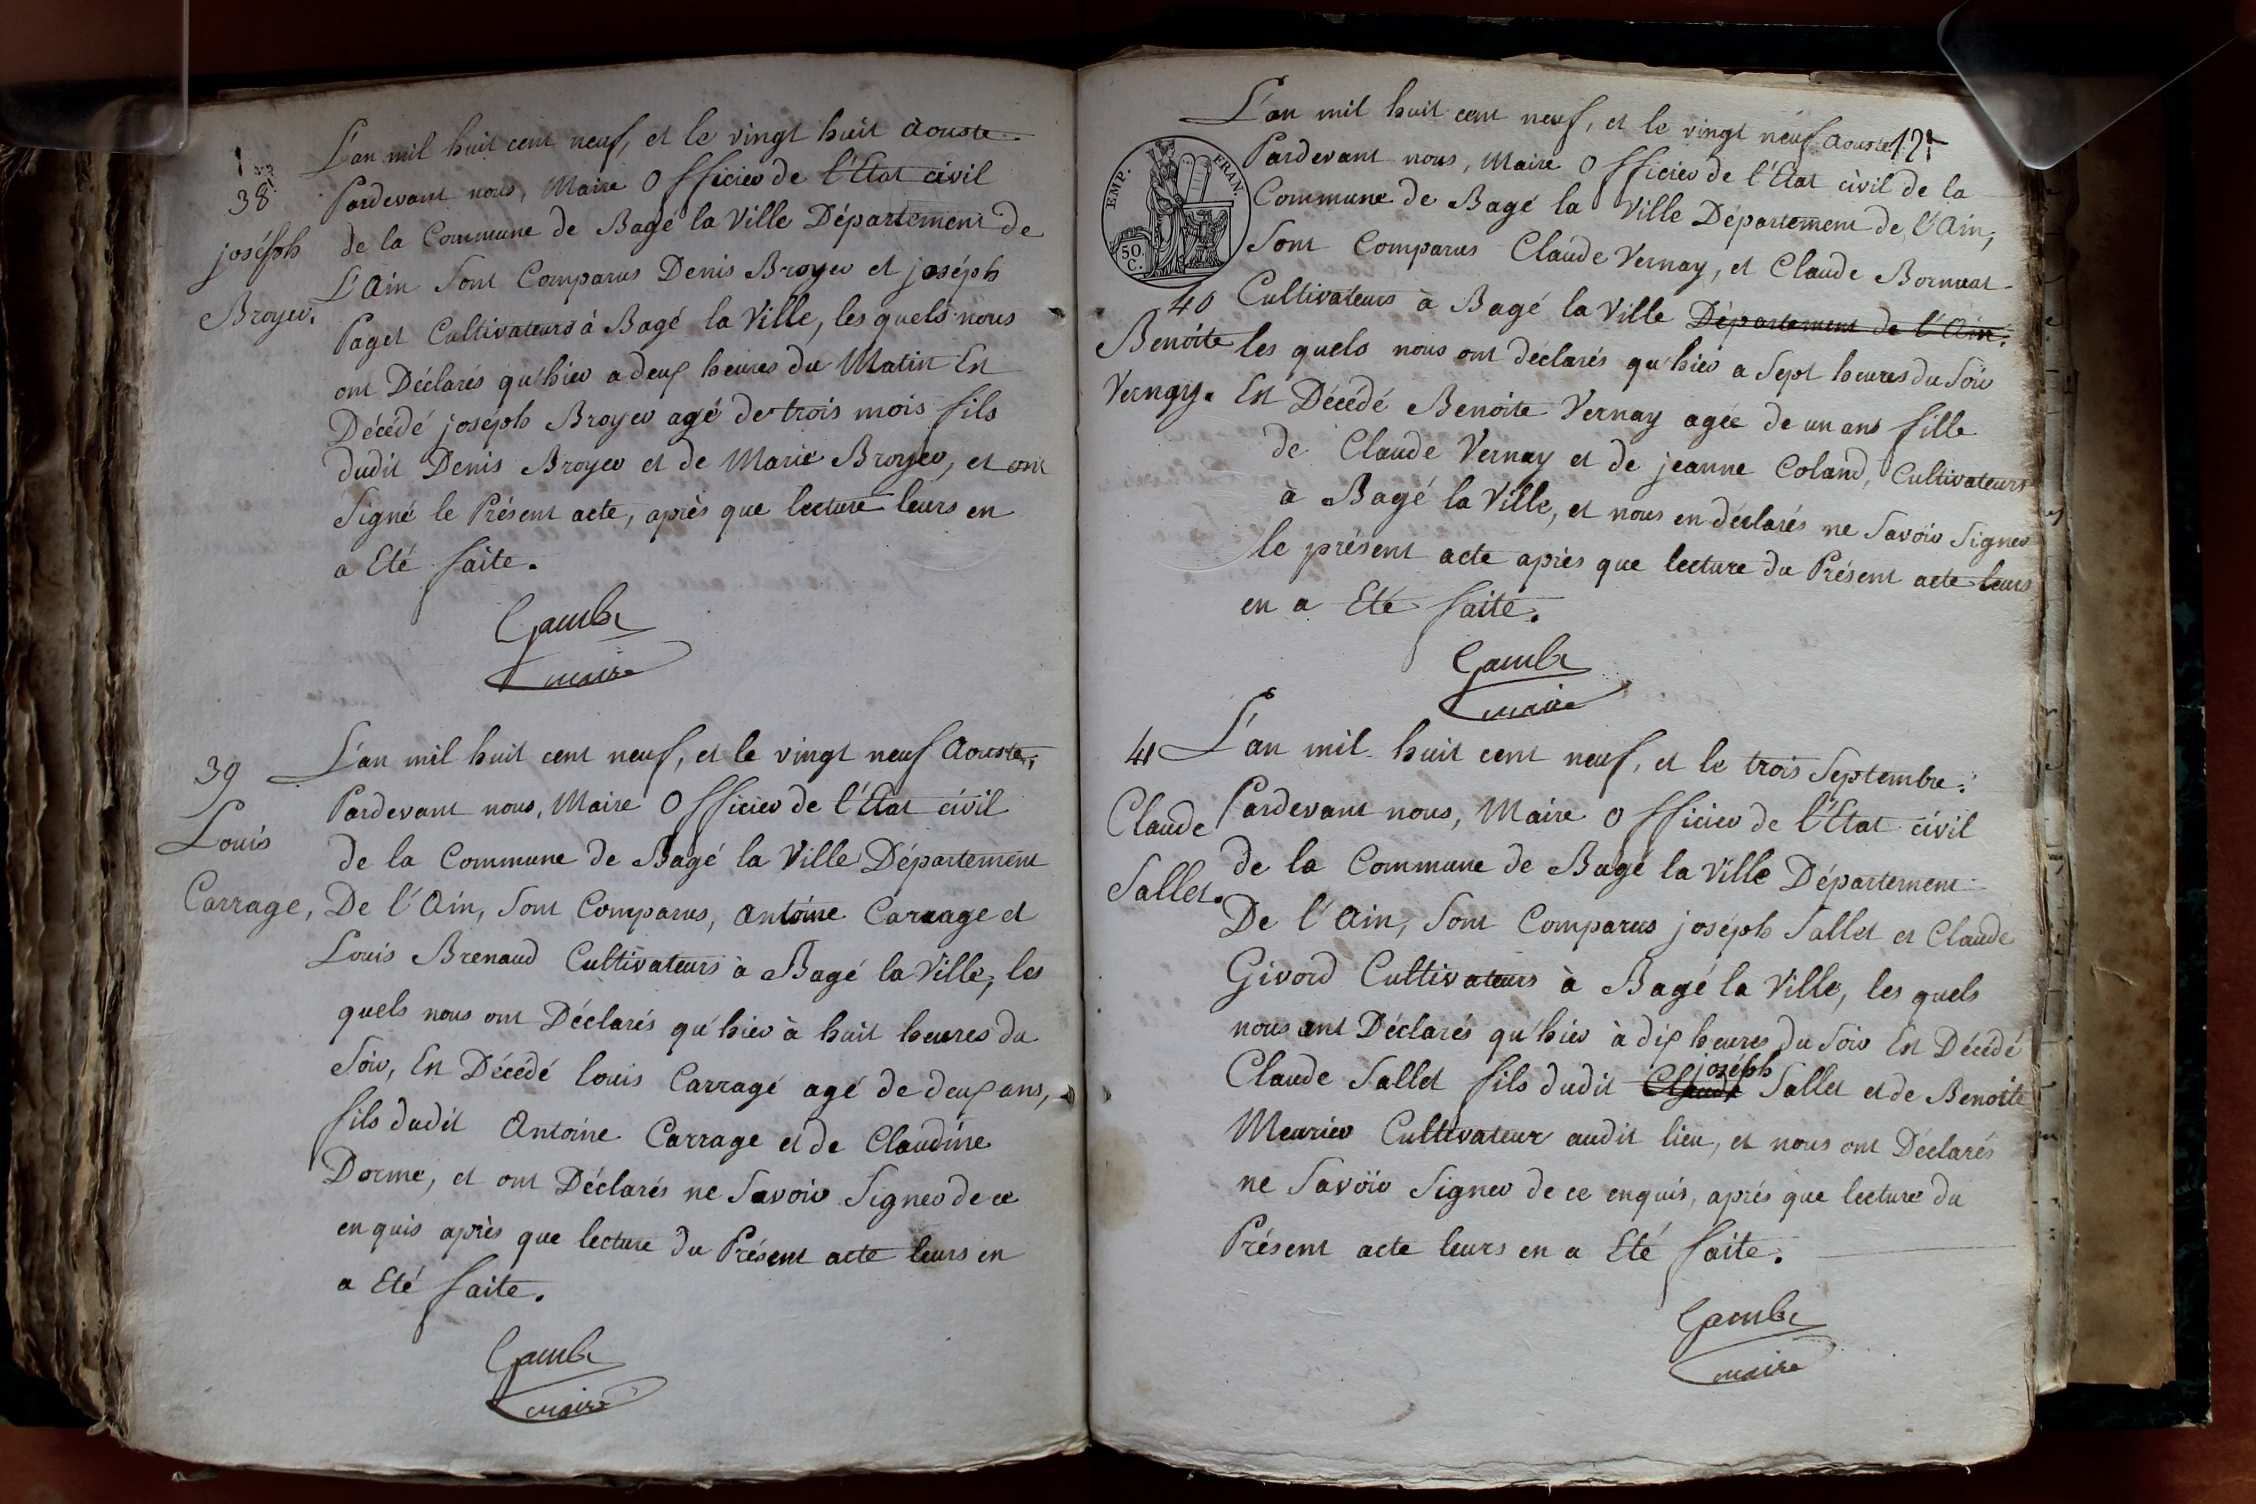 38
joséph
Broyer.
L'an mil huit cent neuf, et le vingt huit Aouste
Pardevant nous, Maire Officier de l'Etat civil
de la Commune de Bagé la Ville Département de
L'Ain Sont Comparus Denis Broyer et joséph
Paget Cultivateurs à Bagé la Ville, les quels nous
ont Déclarés qu'hier a deux heures du Matin Est
Décédé joséph Broyer agé de trois mois fils
dudit Denis Broyer et de Marie Broyer, et ont
Signé le Présent acte, après que lecture leurs en
a Eté faite.
Gambe
maire
39
Louis
Carrage,
L'an mil huit cent neuf, et le vingt neuf Aouste,
Pardevant nous, Maire Officier de l'Etat civil
de la Commune de Bagé la Ville Département
De l'Ain, Sont Comparus, Antoine Carrage et
Louis Brenaud Cultivateurs à Bagé la Ville, les
quels nous ont Déclarés qu'hier à huit heures du
Soir, Est Décédé Louis Carragé agé de deux ans,
fils dudit Antoine Carrage et de Claudine
Dorme, et ont Déclarés ne Savoir Signer de ce
enquis après que lecture du Présent acte leurs en
a Eté faite.
Gambe
maire
EMP. FRAN.
50
C.
40
Benoite
Vernay.
L'an mil huit cent neuf, et le vingt neuf Aouste
Pardevant nous, Maire Officier de l'Etat civil de la
Commune de Bagé la Ville Département de l'Ain,
Sont Comparus Claude Vernay, et Claude
Cultivateurs à Bagé la Ville Département de l'Ain.
les quels nous ont déclarés qu'hier a Sept heures du Soir
Est Décédé Benoite Vernay agée de un ans fille
de Claude Vernay et de jeanne Coland, Cultivateurs
à Bagé la Ville, et nous en déclarés ne Savoir Signer
le présent acte après que lecture du Présent acte leurs
en a Eté faite.
Gambe
maire
41
Claude
Sallet.
L'an mil huit cent neuf, et le trois Septembre.
Pardevant nous, Maire Officier de l'Etat civil
de la Commune de Bagé la Ville Département
De l'Ain, Sont Comparus joséph Sallet et Claude
Givord Cultivateurs à Bagé la Ville, les quels
nous ont Déclarés qu'hier à dix heures du Soir Est Décédé
Claude Sallet fils dudit Claude joséph Sallet et de Benoite
Meurier Cultivateur audit lieu, et nous ont Déclarés
ne Savoir Signer de ce enquis, après que lecture du
Présent acte leurs en a Eté faite.
Gambe
maire